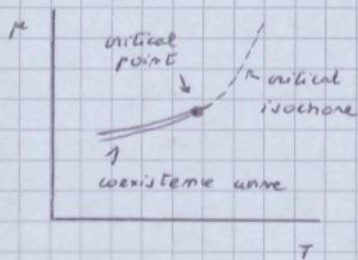 p
critical
point
critical
isochore
coexistence curve
T